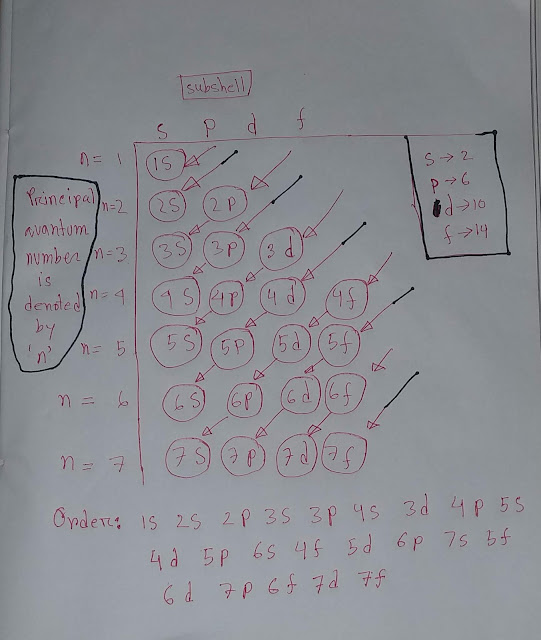 subshell
s p d f
n = 1 1S
n=2 2S 2p
n=3 3S 3p 3d
n=4 4S 4p 4d 4f
n= 5 5S 5p 5d 5f
n = 6 6S 6p 6d 6f
n = 7 7S 7p 7d 7f
Principal
quantum
number
is
denoted
by
'n'
S→2
p→6
d→10
f→14
Order: 1S 2S 2p 3S 3p 4s 3d 4p 5s
4d 5p 6s 4f 5d 6p 7s 5f
6d 7p 6f 7d 7f